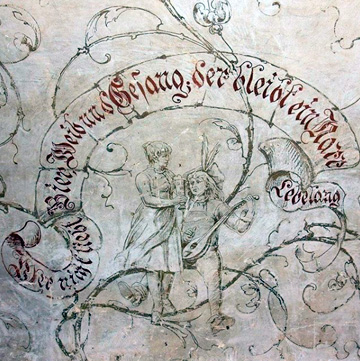 Wer nicht liebt
Bier, Weib und Gesang, der bleibt ein Narr
Lebelang